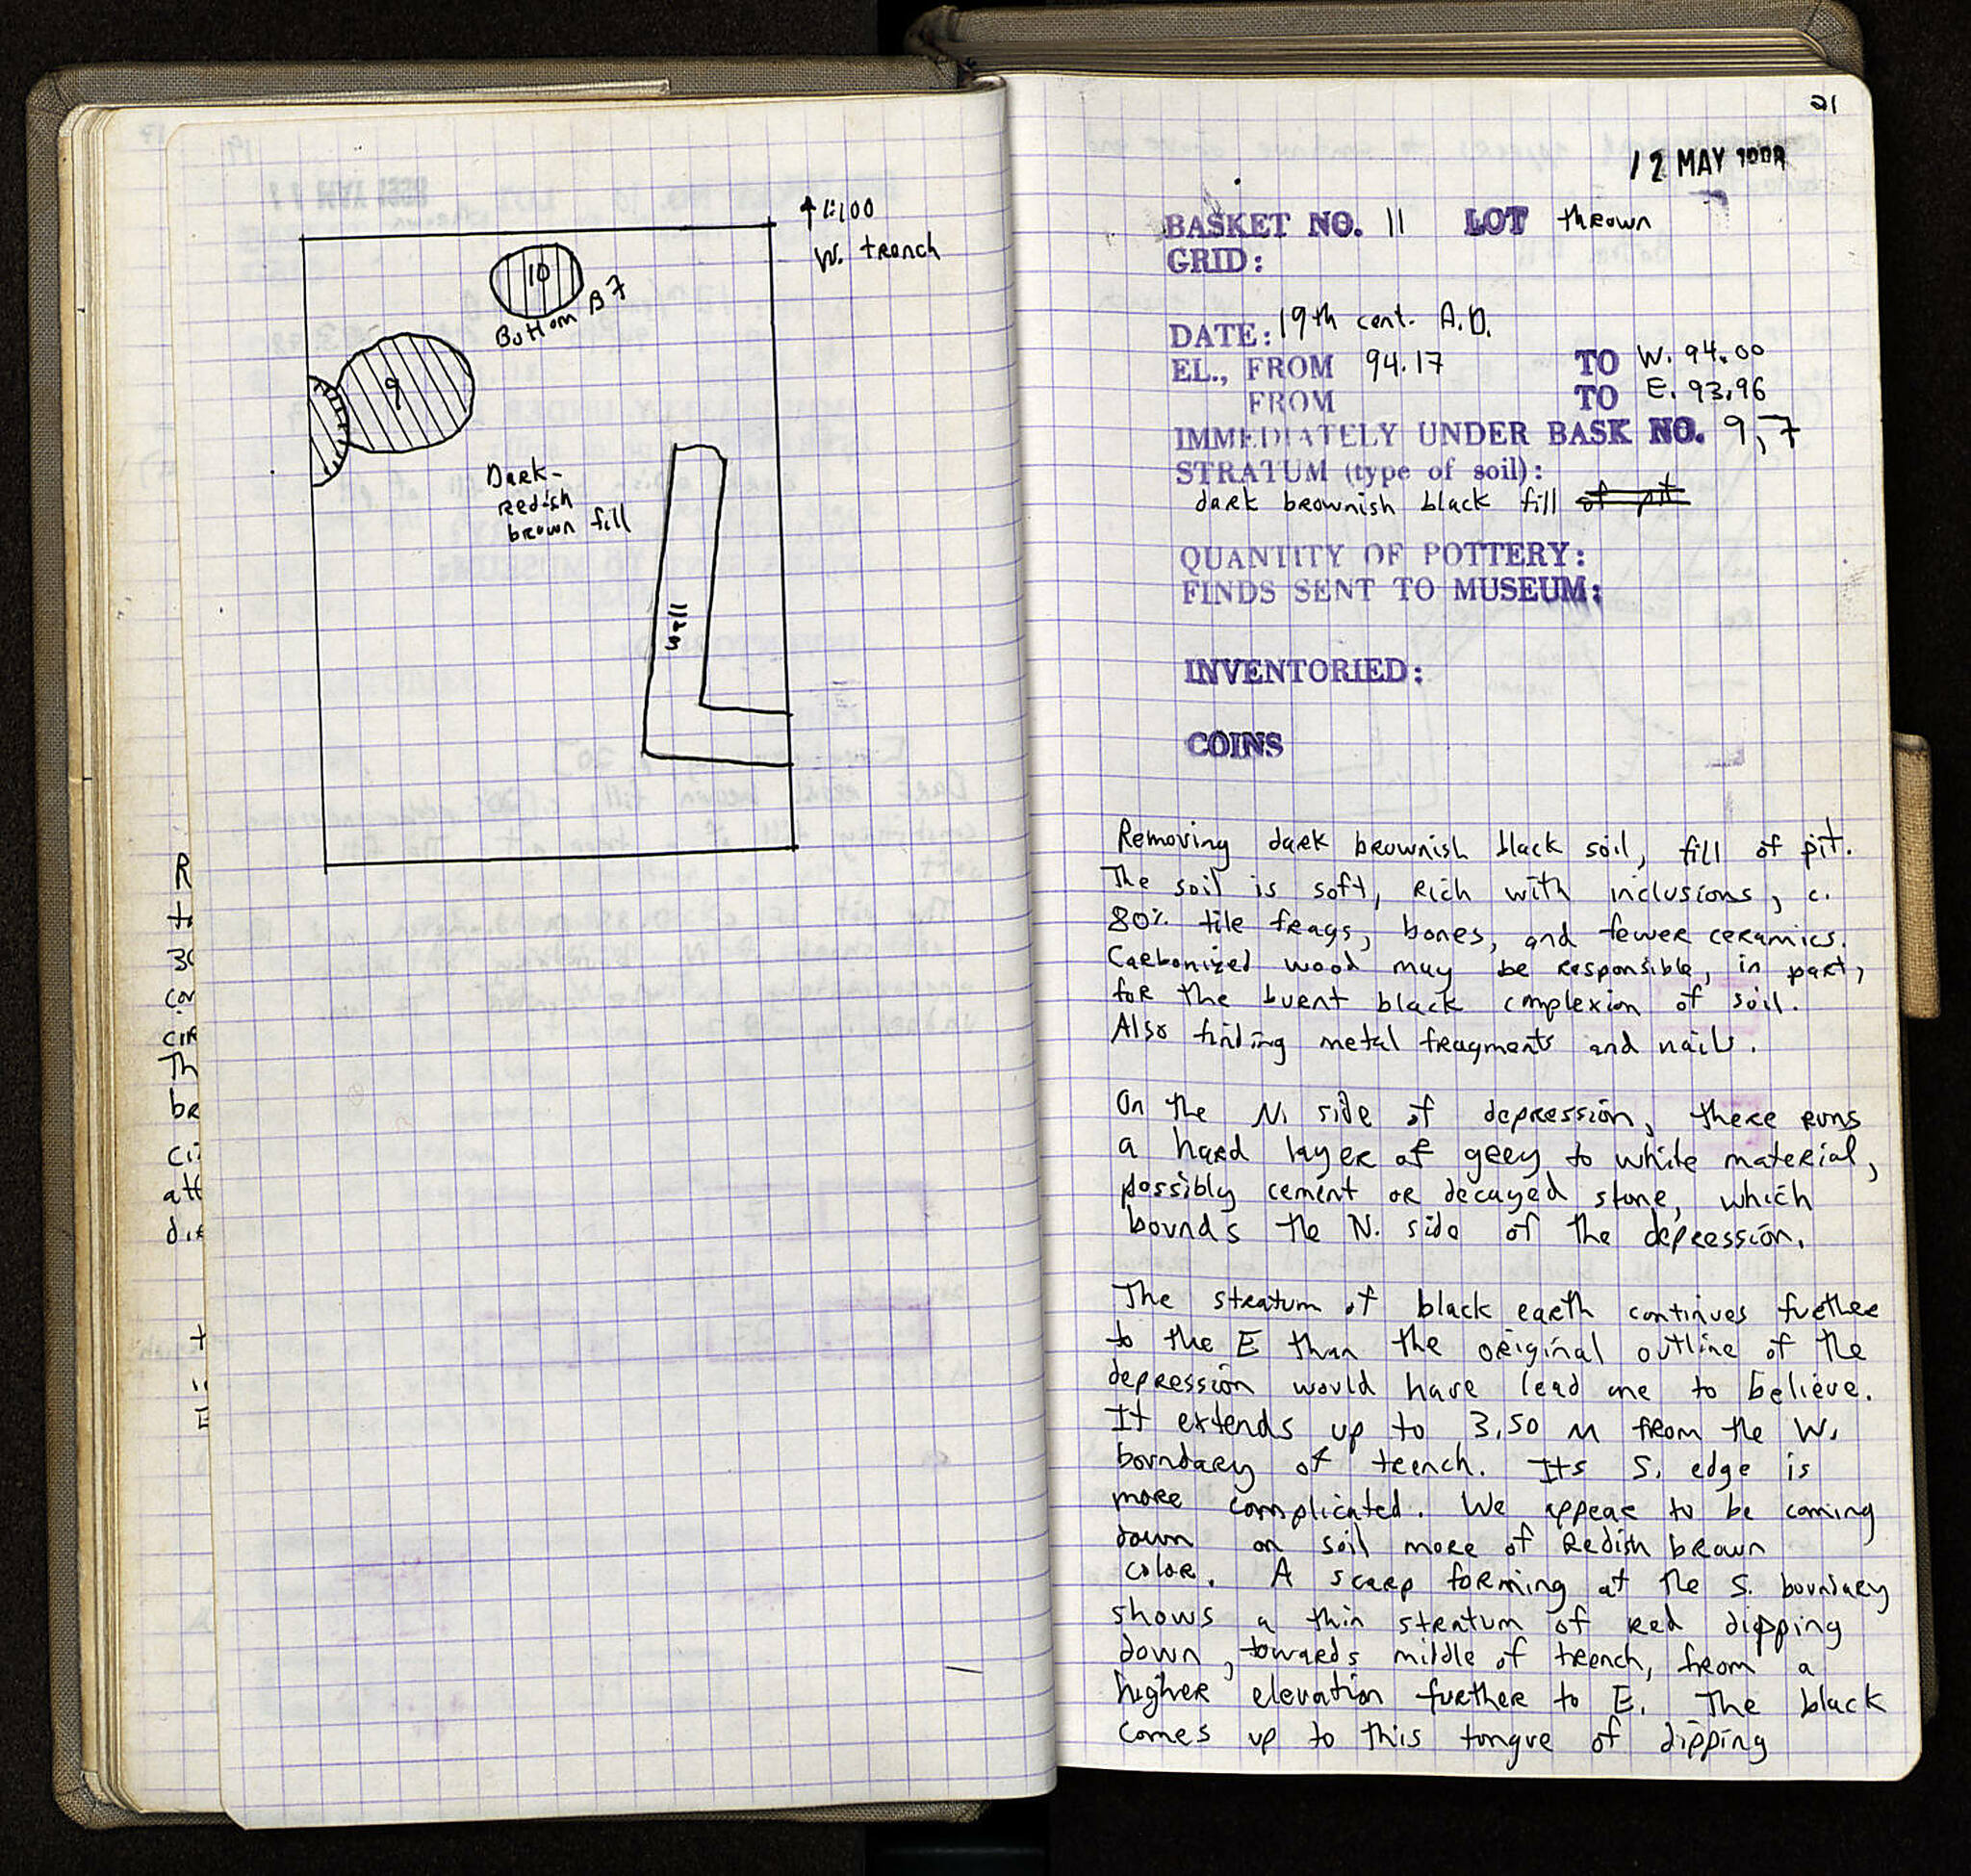 ↑ 1:100
W. trench
10
Bottom B7
9
Dark-
Redish
brown fill
wall
R
3
cor
cir
Th
be
ci
att
21
12 MAY
BASKET NO. 11 LOT thrown
GRID:
DATE: 19th cent. A.D.
EL., FROM 94.17 TO W. 94.00
FROM TO E. 93.96
IMMEDIATELY UNDER BASK NO. 9,7
STRATUM (type of soil):
dark brownish black fill of pit
QUANTITY OF POTTERY:
FINDS SENT TO MUSEUM:
INVENTORIED:
COINS
Removing dark brownish black soil, fill of pit.
The soil is soft, rich with inclusions, c.
80% tile frags, bones, and fewer ceramics.
Carbonized wood may be responsible, in part,
for the burnt black complexion of soil.
Also finding metal fragments and nails.
On the N. side of depression, there runs
a hard layer of grey to white material,
possibly cement or decayed stone, which
bounds the N. side of the depression.
The stratum of black earth continues further
to the E than the original outline of the
depression would have lead one to believe.
It extends up to 3.50 m from the W.
boundary of trench. Its S. edge is
more complicated. We appear to be coming
down on soil more of Redish brown
color. A scarp forming at the S. boundary
shows a thin stratum of red dipping
down, towards middle of trench, from a
higher elevation further to E. The black
comes up to this tongue of dipping